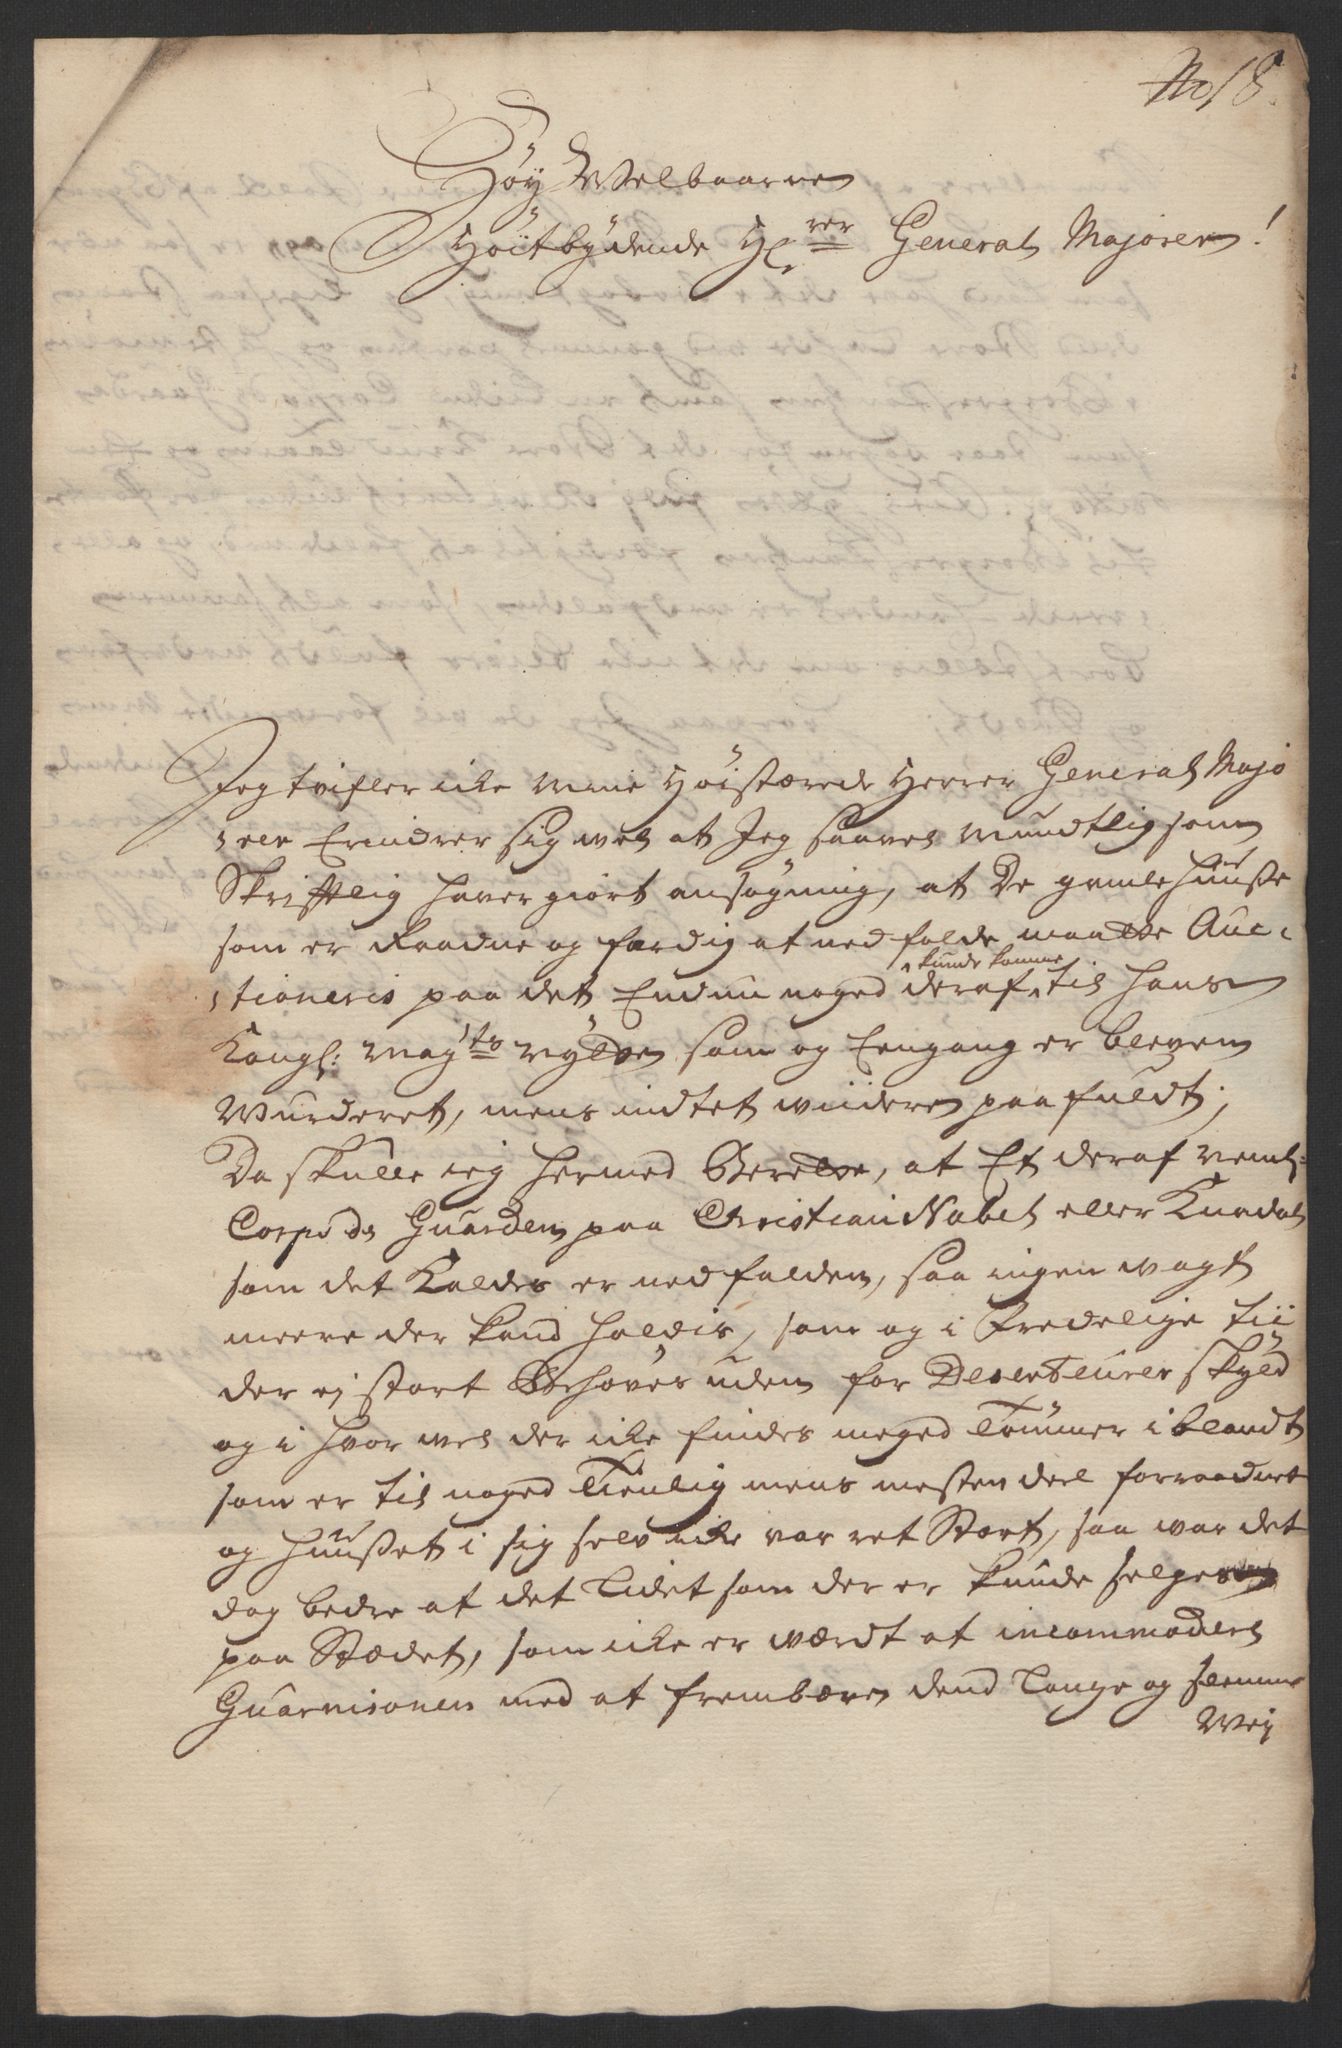 No 18.
Höy Welbaarne
Höitbydende Hr. rer General Majorer!
Jeg tvifler icke mine Höistærede Herrer General Majo
rer Erindrer sig wel at Jeg saavel mundtlig som
Skrifftlig haver giort ansögning, at De gamle Huuse
som er Raadne og færdig at nedfalde maatte Auc-
tioneris paa det Endnu noged deraf kunde komme til Hans
Kongl: May:ts nytte som og Eengang er bleven
Wurderet, mens indtet wiidere paafuldt;
Da skulle ieg hermed Berette, at Et deraf neml:
Corps de Guarden paa Christiani Nabel eller Knadal
som det Kaldes er nedfalden, saa ingen wagt
meere der kand holdis, som og i Fredelige Tii
der ej stort Behöves uden for Deserteurer skyld
og i hvor wel der icke findes meged Tömmer iblandt
som er til noged Tienlig mens mesten deel forraadnet
og Huuset i sig selv icke var ret Stort, saa war det
dog bedre at det Lidet som der er kunde selges
paa Stædet, som icke er wærdt at incommodere
Guarnisonen med at frembære dend Lange og slemme
Weij